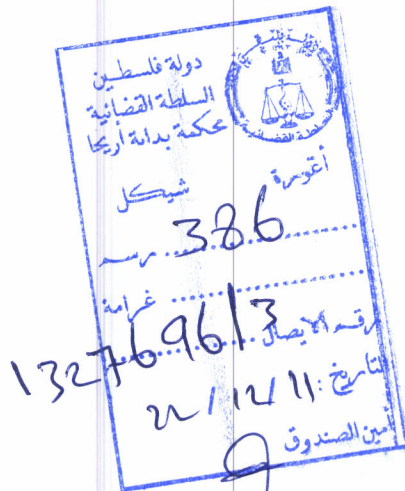 دولة فلسطين
السلطة القضائية
محكمة بداية أريحا
أغورة شيكل
رسم 386
غرامة
رقم الايصال 132769613
التاريخ: 22/12/11
أمين الصندوق